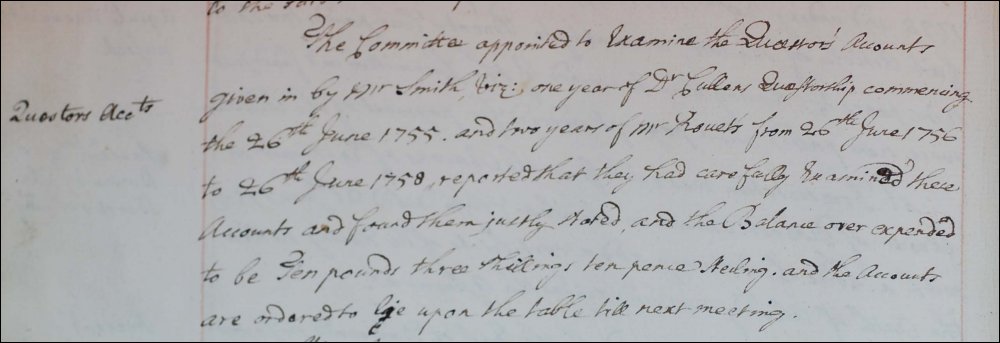 The Committee appointed to Examine the Quæstors Accounts
given in by Mr Smith, Viz: one year of Dr Cullens Quæstorship commencing
Quæstors Accts
the 26th June 1755. and two years of Mr Rouets from 26th June 1756
to 26th June 1758, reported that they had carefully Examined these
Accounts and found them justly stated, and the Balance over expended
to be Ten pounds three shillings ten pence Sterling. and the Accounts
are ordered to lye upon the table till next meeting.